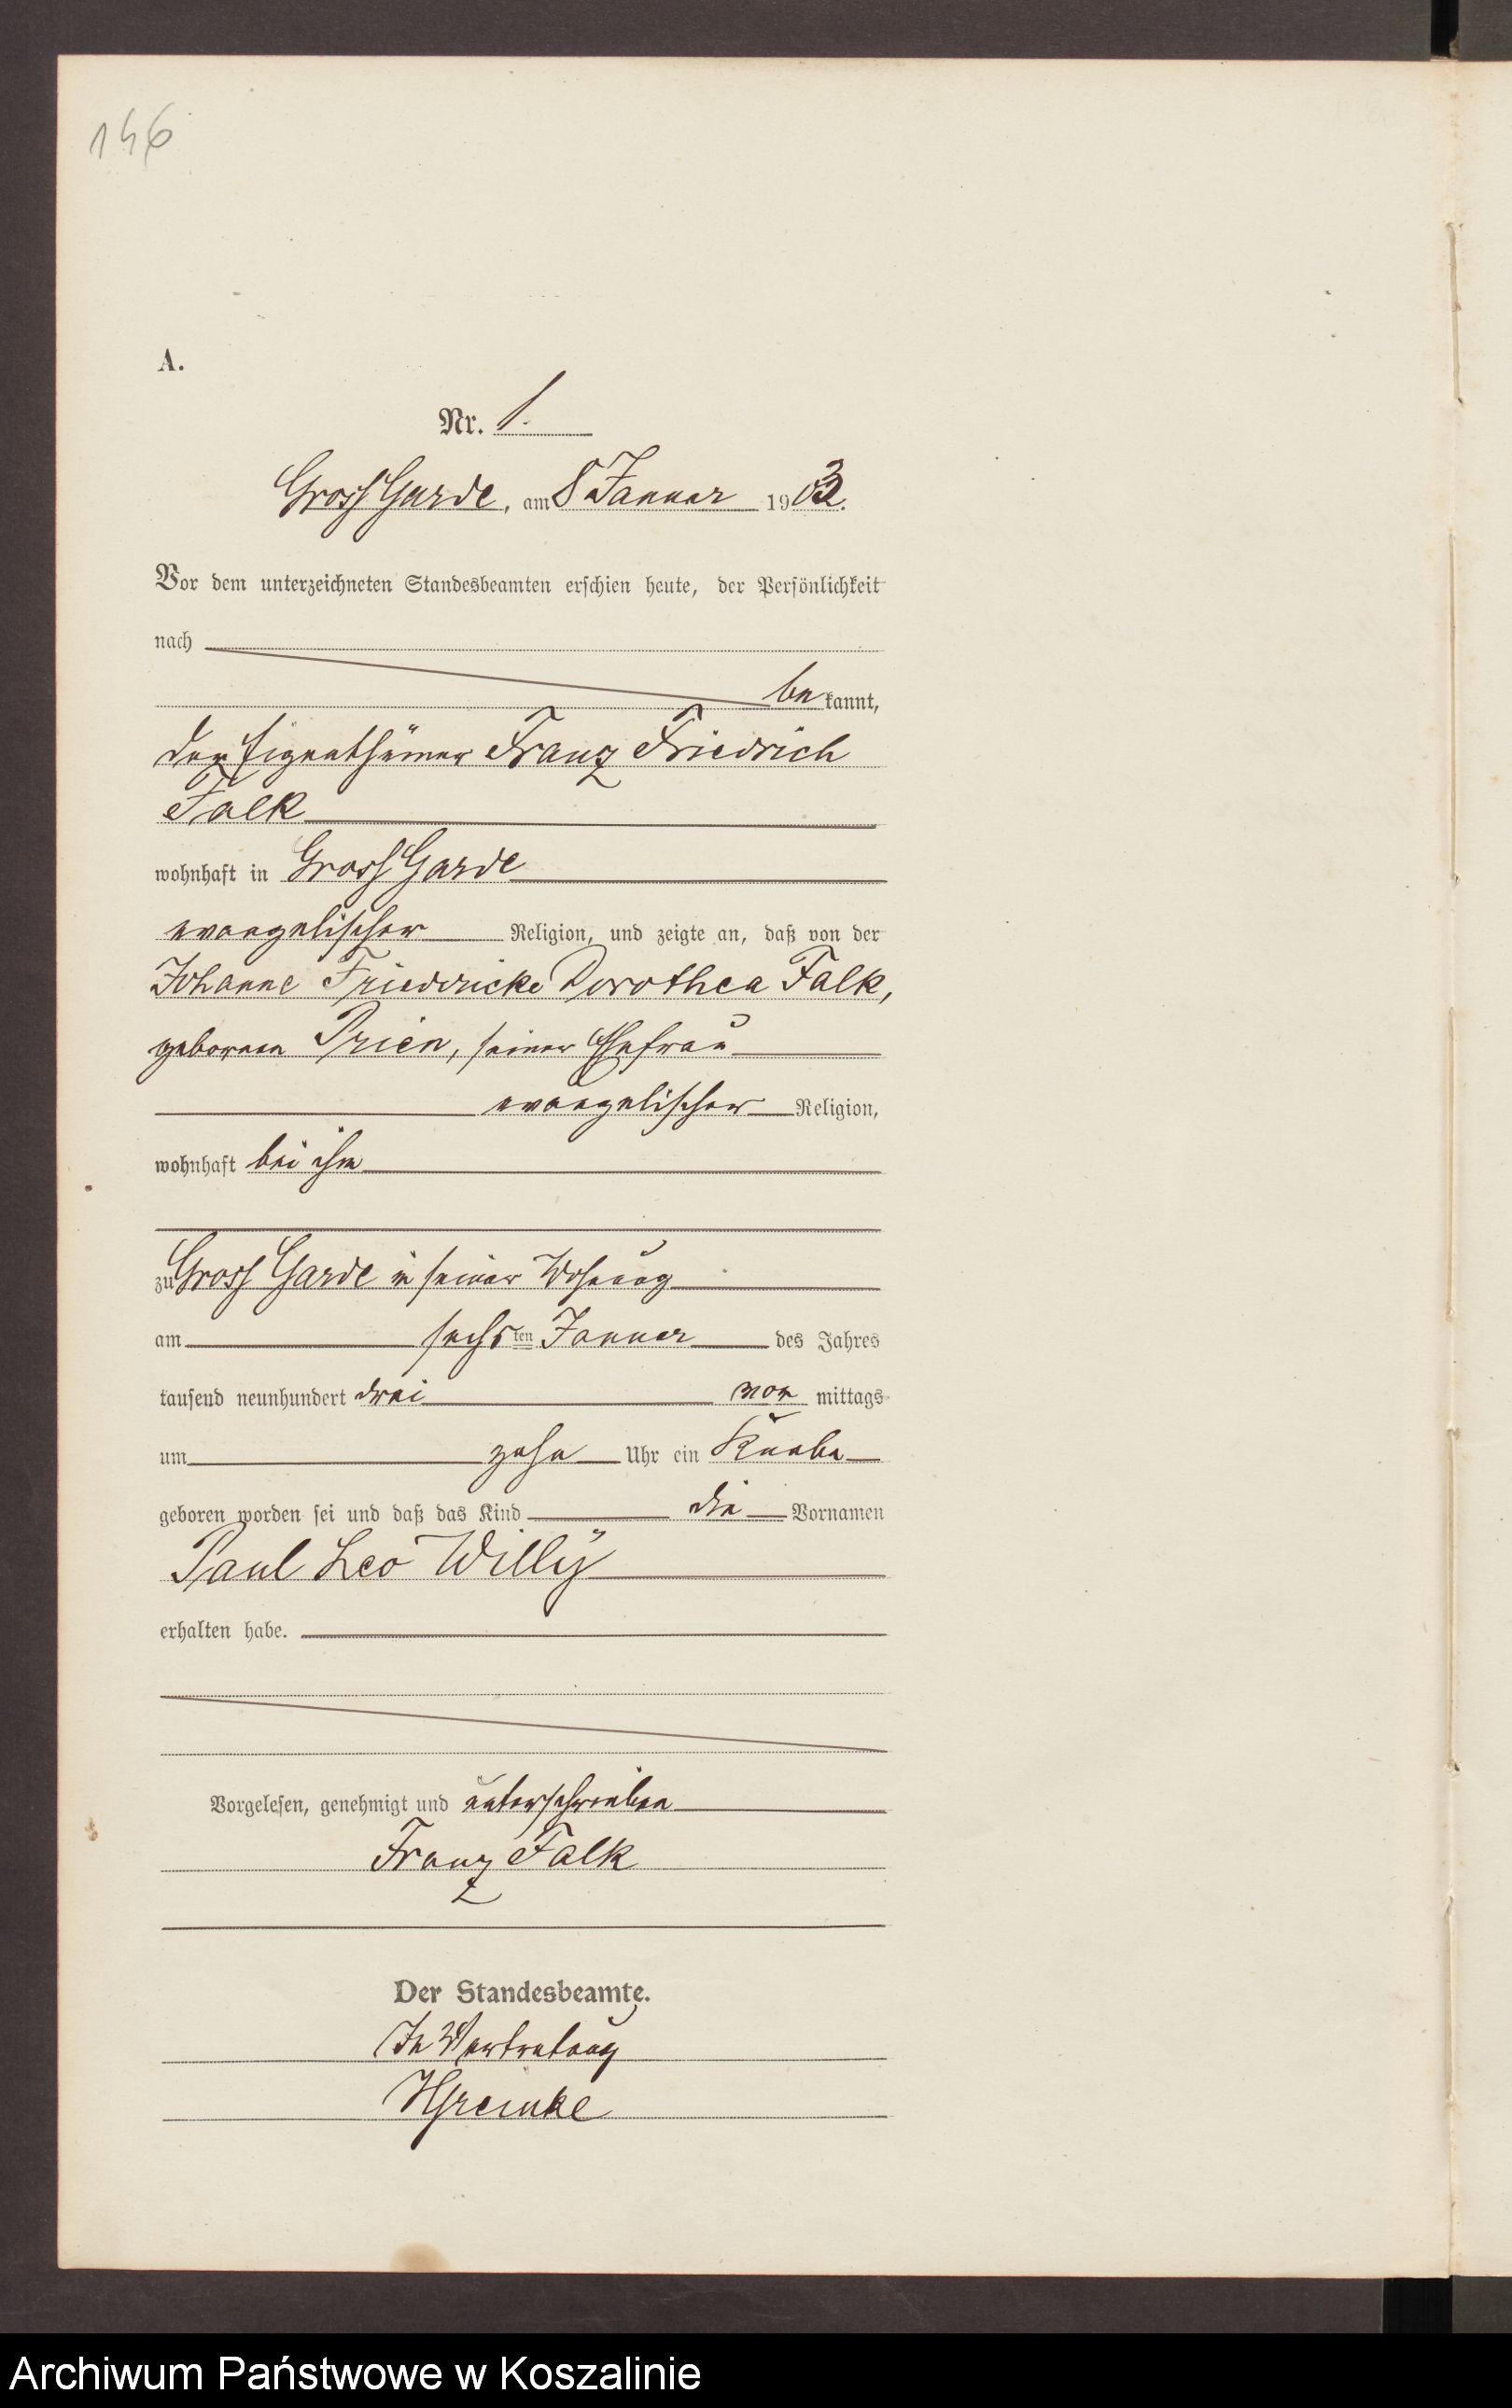 146
A.
Nr. 1.
Gross Garde, am 8 Januar 1903.
Vor dem unterzeichneten Standesbeamten erschien heute, der Persönlichkeit
nach
be kannt,
der Eigenthümer Franz Friedrich
Falk
wohnhaft in Gross Garde
evangelischer Religion, und zeigte an, daß von der
Johanne Friedricke Dorothea Falk,
geborenen Prien, seiner Ehefrau
evangelischer Religion,
wohnhaft bei ihm
zu Gross Garde in seiner Wohnung
am sechsten Januar des Jahres
tausend neunhundert drei vor mittags
um zehn Uhr ein Knabe
geboren worden sei und daß das Kind die Vornamen
Paul Leo Willy
erhalten habe.
Vorgelesen, genehmigt und unterschrieben
Franz Falk
Der Standesbeamte.
In Vertretung
Archiwum Państwowe w Koszalinie